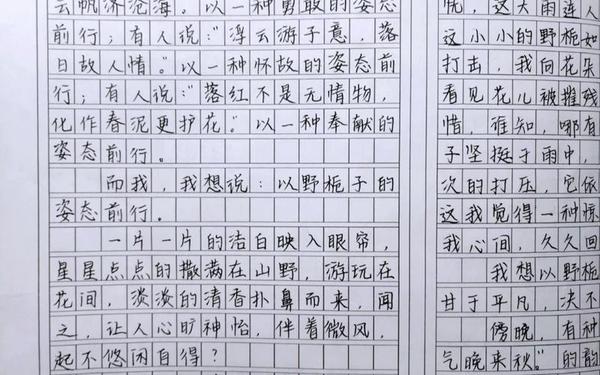 云帆济沧海。以一种勇敢的姿态
前行；有人说：“浮云游子意，落
日故人情。”以一种怀故的姿态前
行；有人说：“落红不是无情物，
化作春泥更护花。”以一种奉献的
姿态前行。
而我，我想说：以野栀子的
姿态前行。
一片一片的洁白映入眼帘，
星星点点的撒满在山野，游玩在
花间，淡淡的清香扑鼻而来，闻
之，让人心旷神怡，伴着微风，
起不悠闲自得？
恍，这大雨连人
这小小的野栀如
打击，我向花朵
看见花儿被摧残
惜，谁知，哪有
子坚挺于雨中，
次的打压，它依
这我觉得一种惊
我心间，久久回
我想以野栀
甘于平凡，决不
傍晚，有种
气晚来秋。”的韵